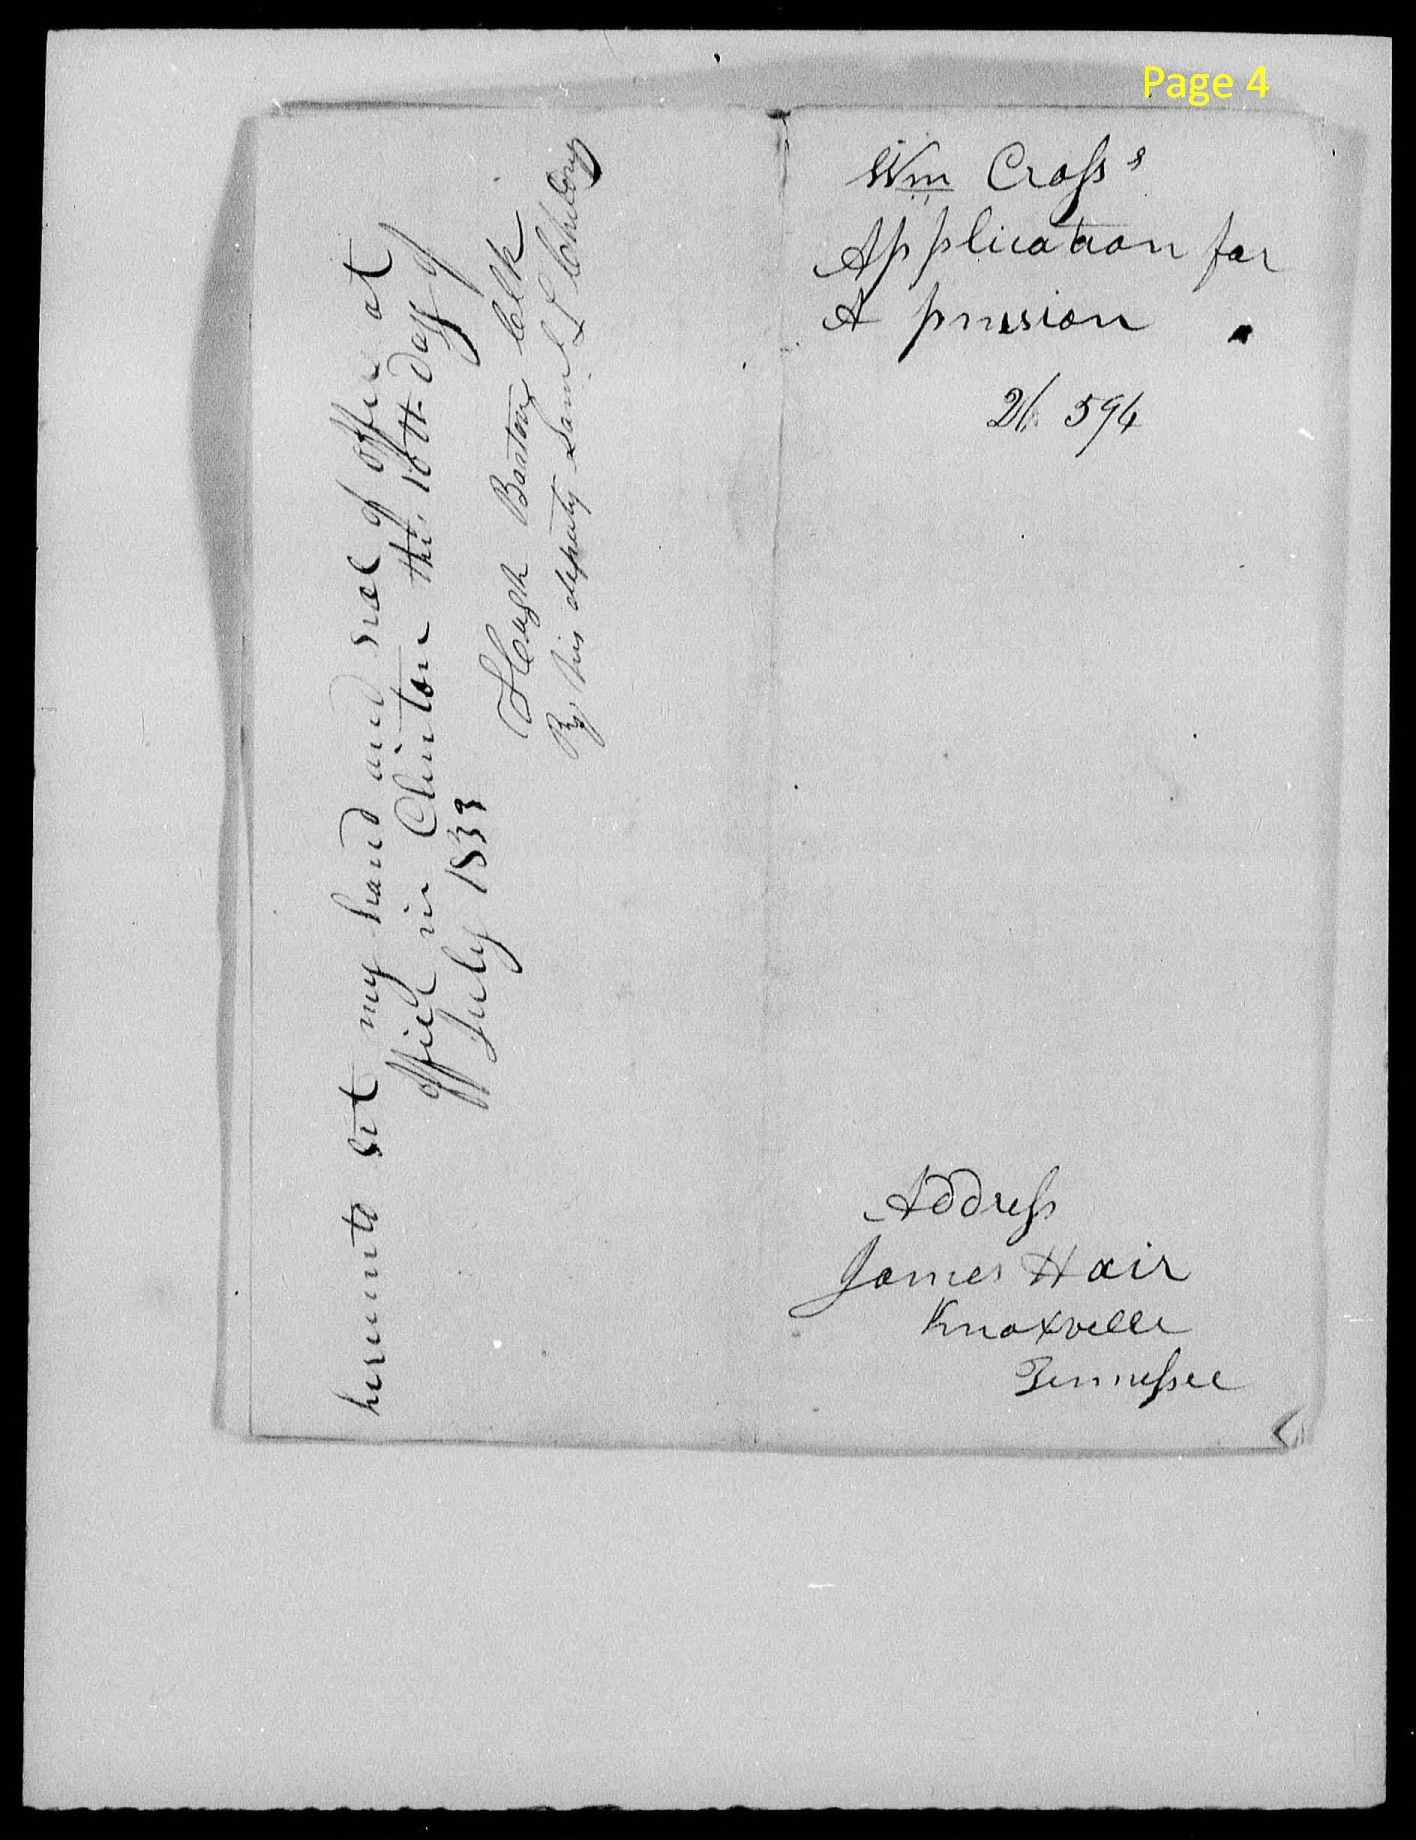 Page 4
Wm Cross's
Application for
A pension
26 594
hereunto set my hand and seal of office at
office in Clinton the 18th day of
July 1833
Hugh Barton Clk
By his deputy Saml L Childry
Address
James Hair
Knoxville
Tennessee